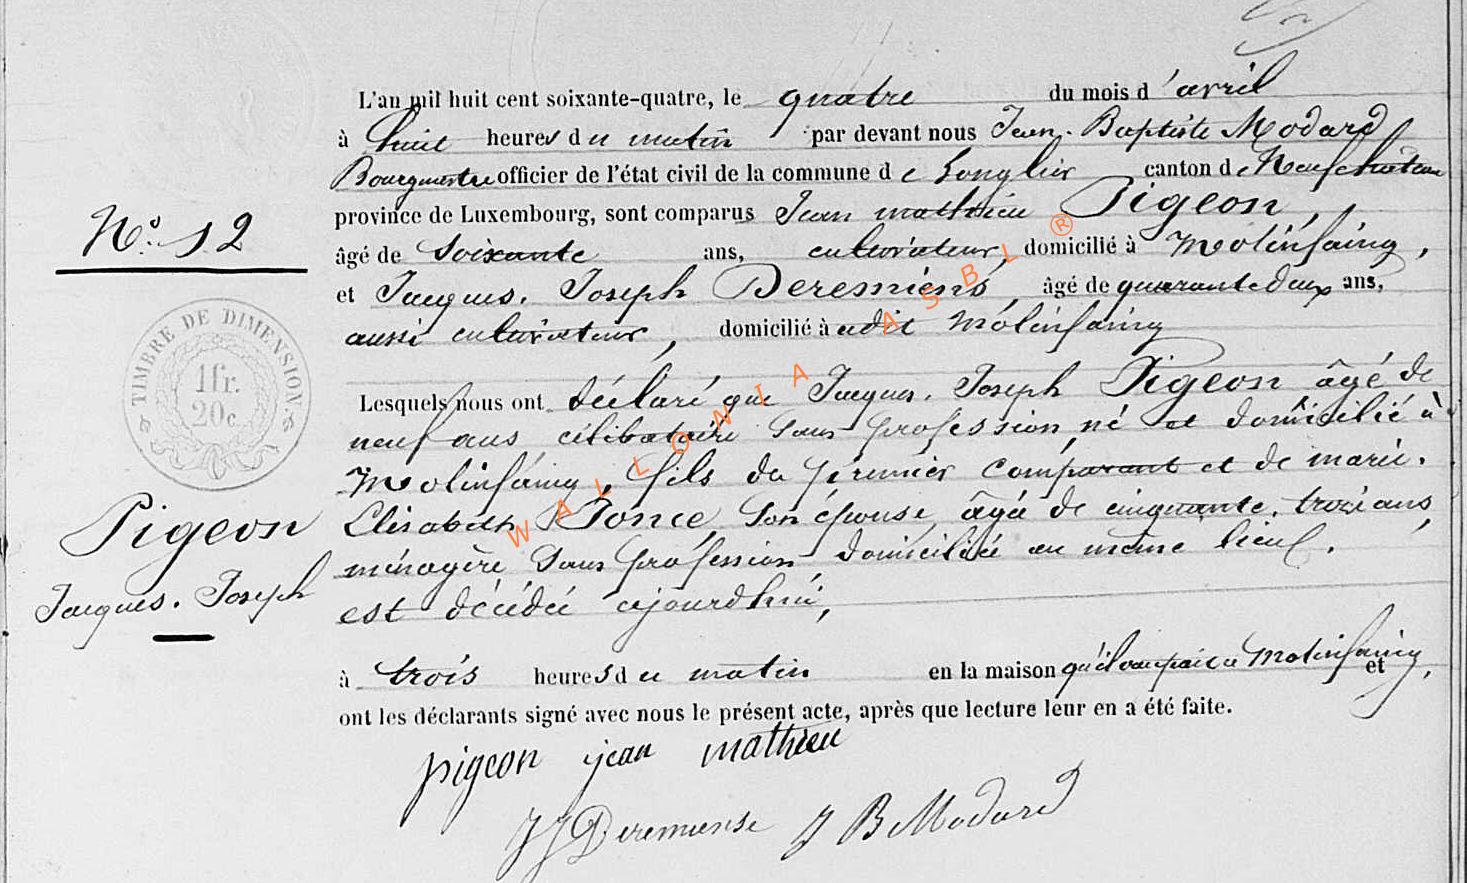 L'an mil huit cent soixante-quatre, le quatre du mois d'avril
à huit heures du matin par devant nous Jean-Baptiste Modard
Bourgmestre officier de l'état civil de la commune de Longlier canton de Neufchâteau
province de Luxembourg, sont comparus Jean mathieu Pigeon,
N° 12
âgé de Soixante ans, cultivateur, domicilié à Molinfaing,
et Jacques. Joseph Deresmiens, âgé de quarante deux ans,
aussi cultivateur, domicilié à udit Molinfaing
TIMBRE DE DIMENSION
1fr.
20c
Lesquels nous ont déclaré que Jacques. Joseph Pigeon âgé de
neuf ans célibataire sans profession, né et domicilié à
Molinfaing, fils du premier comparant et de marie.
Elisabeth Ponce, son épouse, âgée de cinquante. trois ans,
ménagère sans profession domiciliée au même lieu.
est décédé ajourdhui,
Pigeon
Jacques. Joseph
à trois heures du matin en la maison qu'il occupait à Molinfaing, et
ont les déclarants signé avec nous le présent acte, après que lecture leur en a été faite.
pigeon jean mathieu
JJ Deremiense J B Modard
WALLONIA ASBL ®